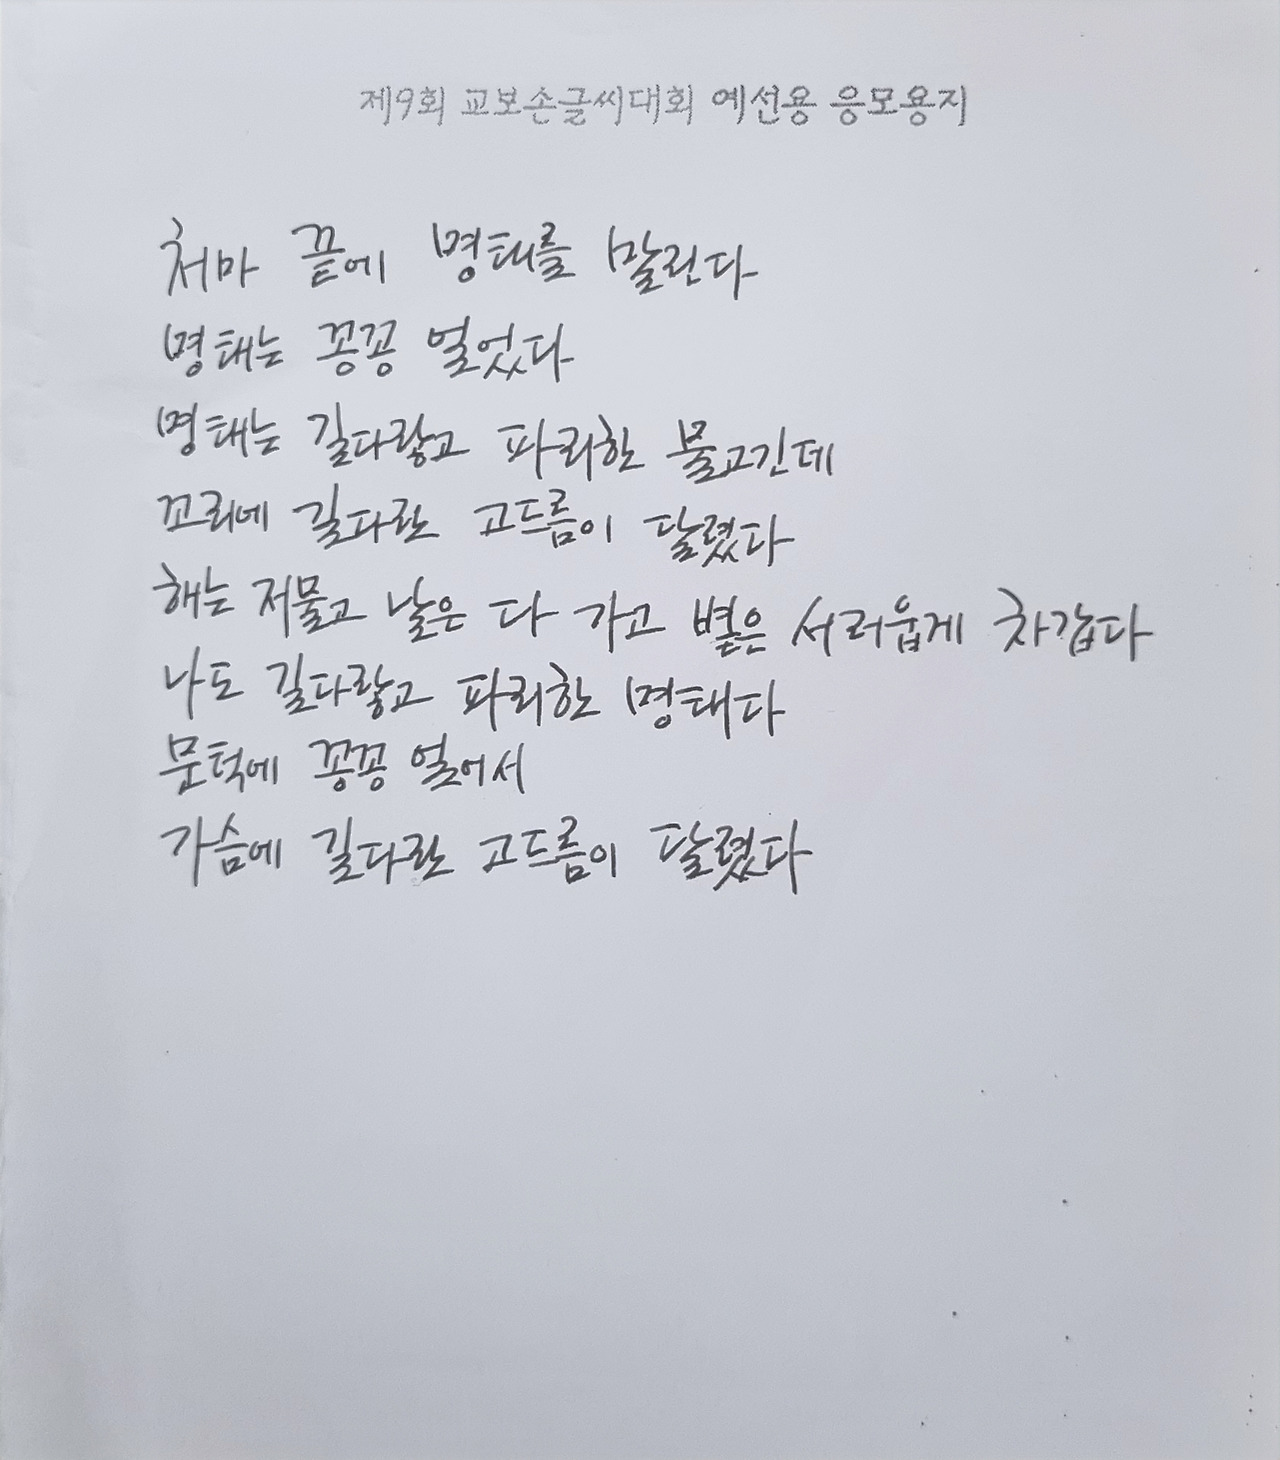 제9회 교보손글씨대회 예선용 응모용지
처마 끝에 명태를 말린다
명태는 꽁꽁 얼었다
명태는 길다랗고 파리한 물고긴데
꼬리에 길다란 고드름이 달렸다
해는 저물고 날은 다 가고 볕은 서러웁게 차갑다
나도 길다랗고 파리한 명태다
문턱에 꽁꽁 얼어서
가슴에 길다란 고드름이 달렸다